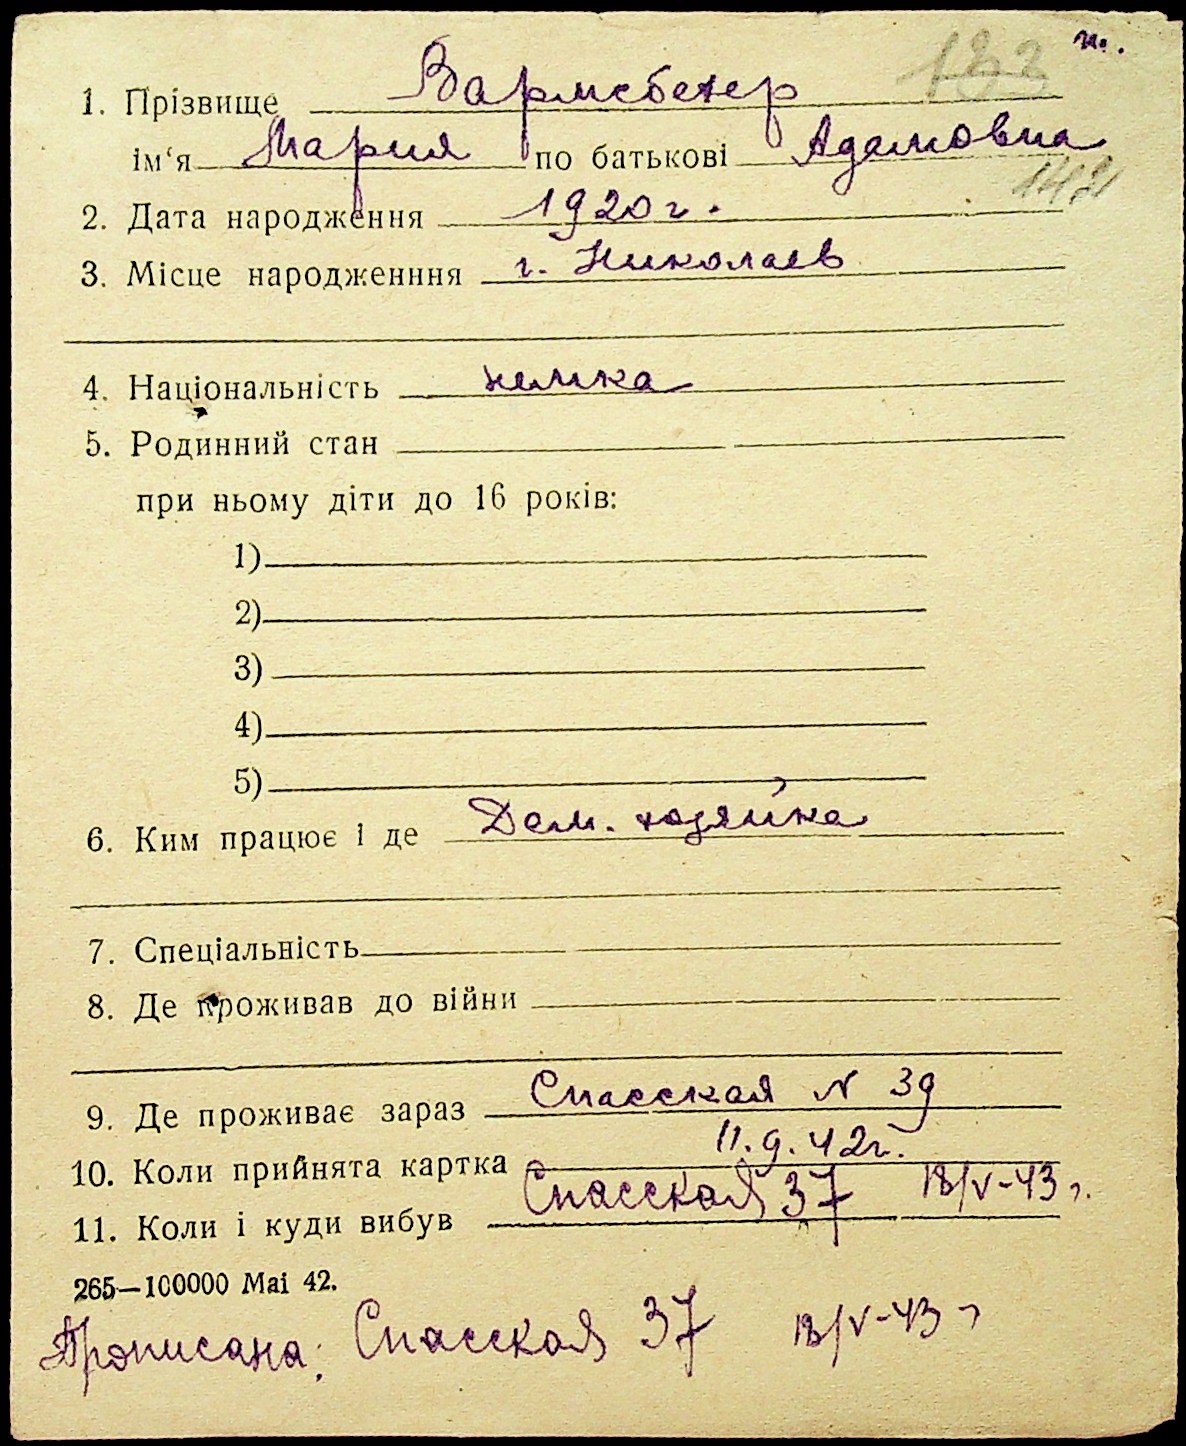 н.
1. Прізвище Вармсбехер
ім‘я Мария по батькові Адамовна
142
2. Дата народження 1920 г.
3. Місце народженння г. Николаев
4. Національність немка
5. Родинний стан
при ньому діти до 16 років:
1)
2)
3)
4)
5)
6. Ким працює і де Дом. хозяйка
7. Спеціальність
8. Де проживав до війни
9. Де проживає зараз Спасская N 39
10. Коли прийнята картка 11.9.42г.
11. Коли і куди вибув Спасская 37 18/V-43 г.
265—100000 Mai 42.
Прописана: Спасская 37 18/V-43 г